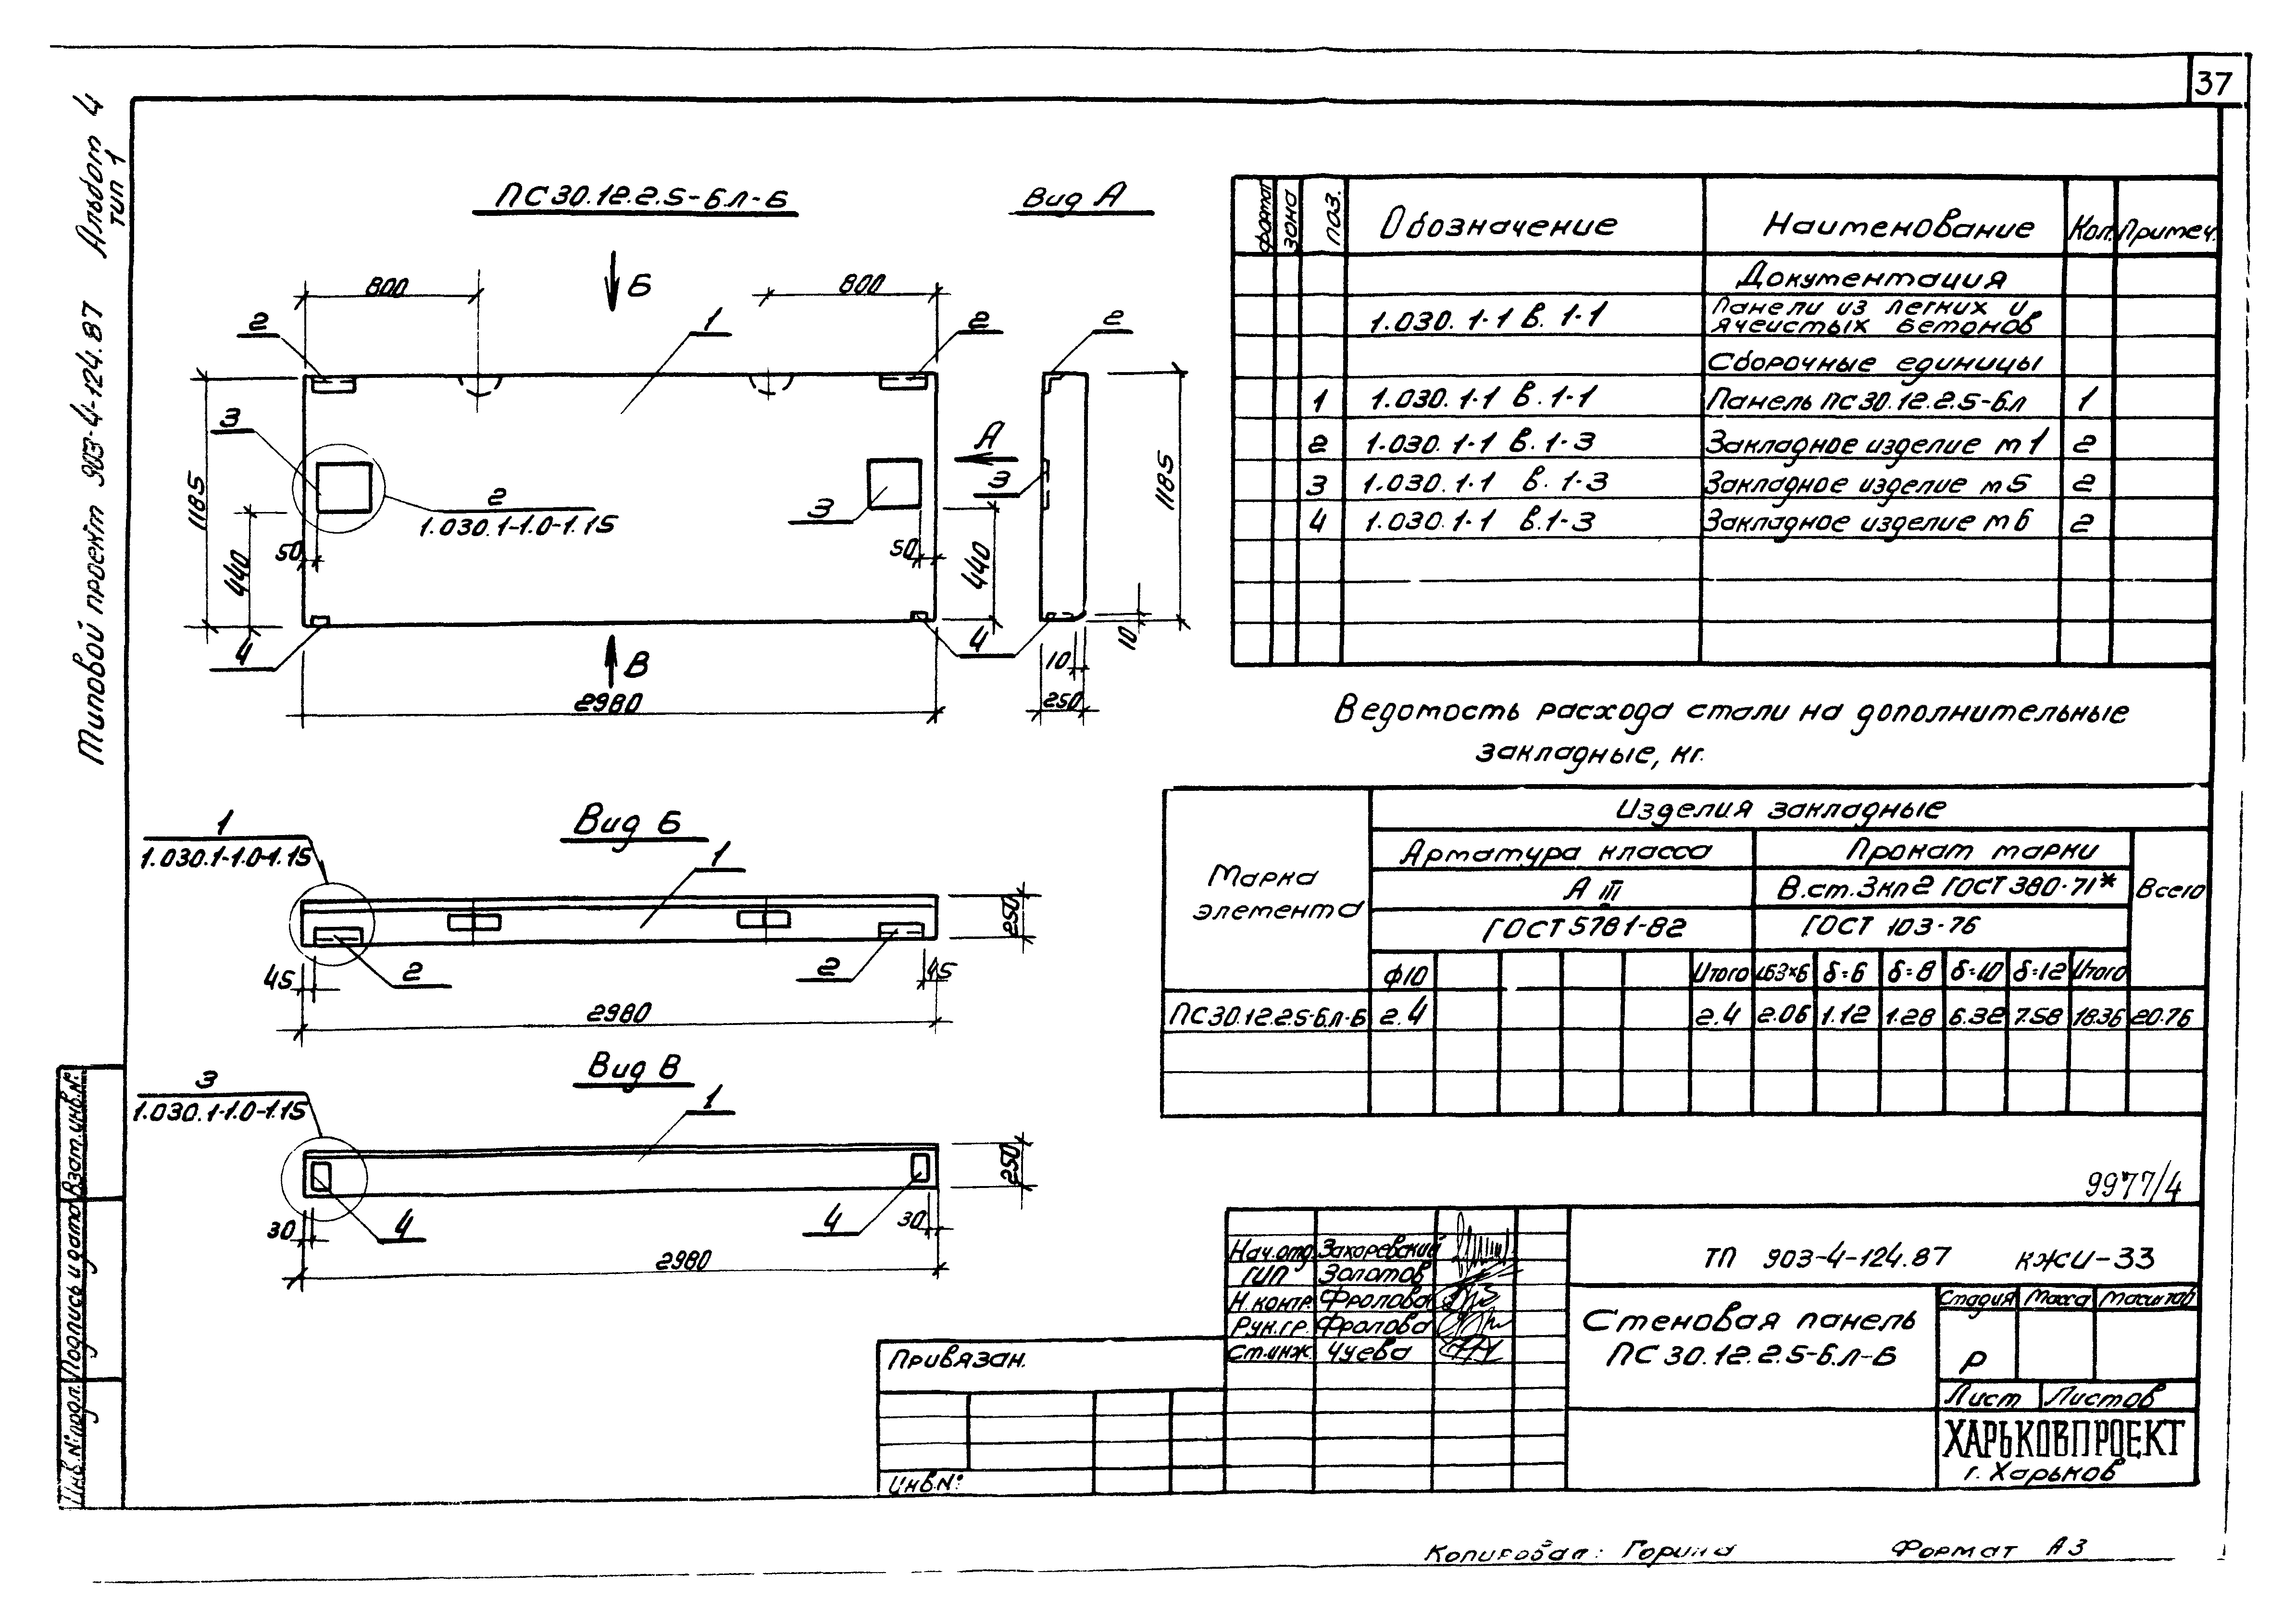 37
Альбом 4
тип 1
Типовой проект 903-4-124.87
ПС30.12.2.5-6.л-Б
Вид А
800
Б
800
2
1
2
2
3
А
3
3
1185
1185
2
1.030.1-1.0-1.15
50
50
440
440
10
4
В
4
10
2980
250
Вид Б
1
1.030.1-1.0-1.15
1
250
45
2
2
45
2980
Вид В
3
1.030.1-1.0-1.15
1
250
30
4
4
30
2980
формат зона поз. Обозначение Наименование Кол. Примеч.
Документация
1.030.1-1 в.1-1 Панели из легких и
ячеистых бетонов
Сборочные единицы
1 1.030.1-1 в.1-1 Панель ПС30.12.2.5-6л 1
2 1.030.1-1 в.1-3 Закладное изделие м1 2
3 1.030.1-1 в.1-3 Закладное изделие м5 2
4 1.030.1-1 в.1-3 Закладное изделие м6 2
Ведомость расхода стали на дополнительные
закладные, кг.
Марка
элемента
Изделия закладные
Арматура класса Прокат марки Всего
А III В.ст.3кп2 ГОСТ 380-71*
ГОСТ 5781-82 ГОСТ 103-76
ф10 Итого L63×6 δ=6 δ=8 δ=10 δ=12 Итого
ПС30.12.2.5-6.л-Б 2.4 2.4 2.06 1.12 1.28 6.32 7.58 18.36 20.76
9977/4
Нач.отд. Закоревский
ГИП Золотов
Н.контр. Фролова
Рук.гр. Фролова
Ст.инж. Чуева
ТП 903-4-124.87 КЖИ-33
Стеновая панель
ПС30.12.2.5-6.л-Б
Стадия Масса Масштаб
Р
Лист Листов
ХАРЬКОВПРОЕКТ
г. Харьков
Привязан.
Инв.№
Инв.№ подл. Подпись и дата Взам.инв.№
Копировал: Горина Формат А3